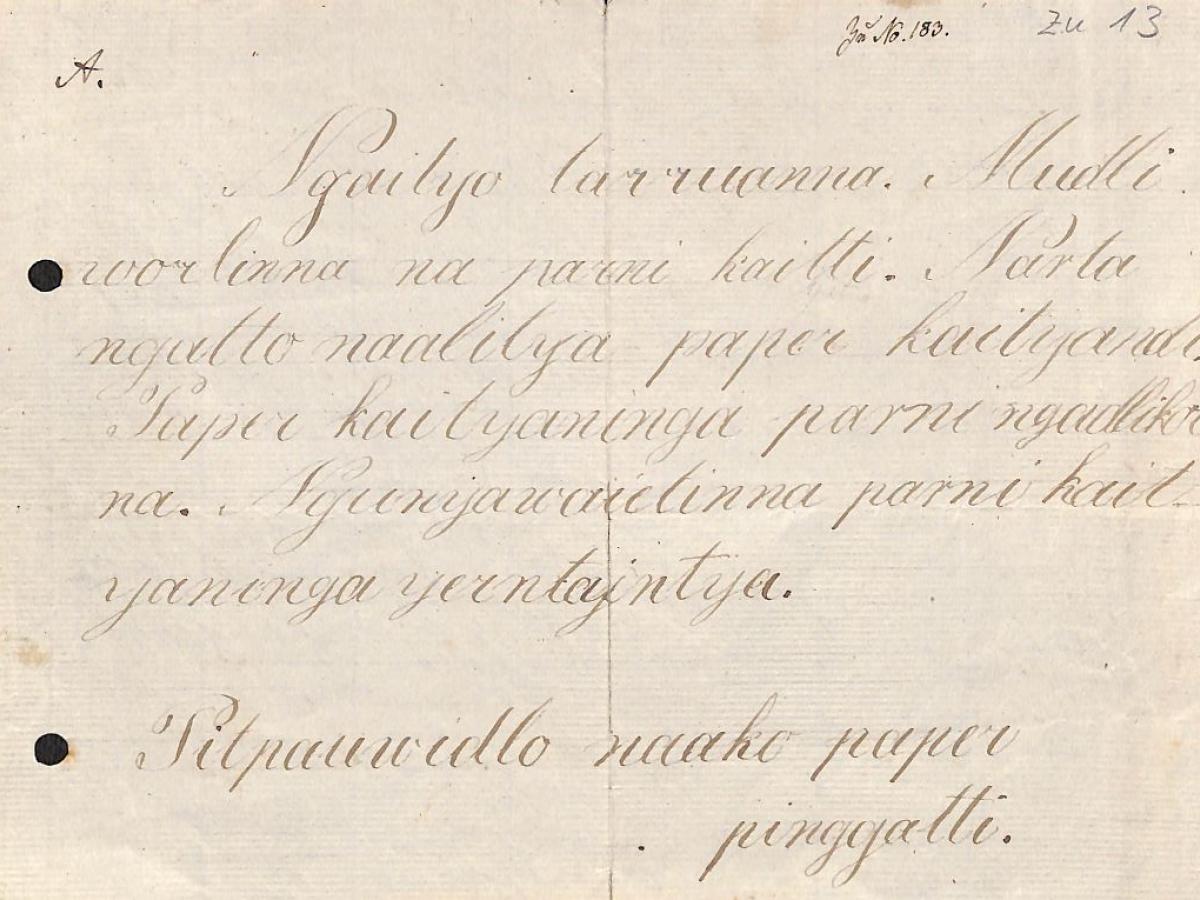 Zu No. 183. zu 13
A.
Ngaityo tarruanna. Mudli
worlinna na parni kaitti. Narta
ngatto naalitya paper kaityandi
Paper kaityaninga parni ngadliko
na. Ngunyawaietinna parni kait-
yaninga yerntajntya.
Pitpauwidlo naako paper
pinggatti.